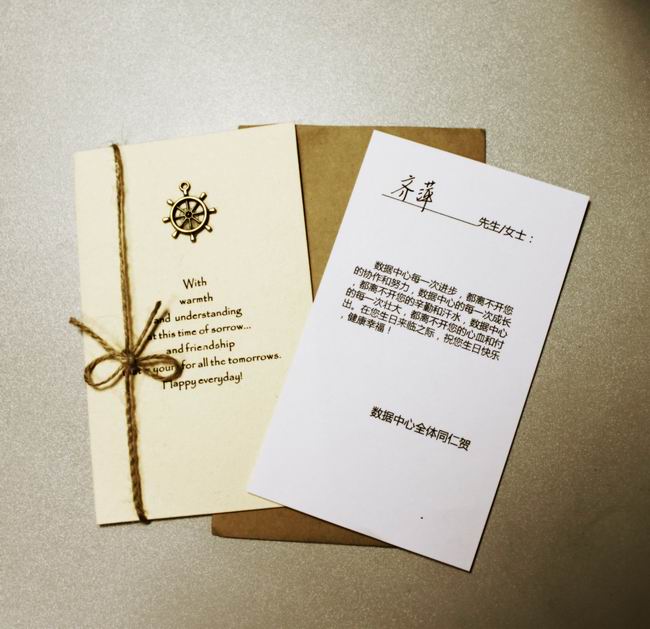 With
warmth
and understanding
at this time of sorrow...
and friendship
for all the tomorrows.
Happy everyday!
齐萍 先生/女士：
数据中心每一次进步，都离不开您
的协作和努力，数据中心的每一次成长
，都离不开您的辛勤和汗水，数据中心
的每一次壮大，都离不开您的心血和付
出。在您生日来临之际，祝您生日快乐
，健康幸福！
数据中心全体同仁贺